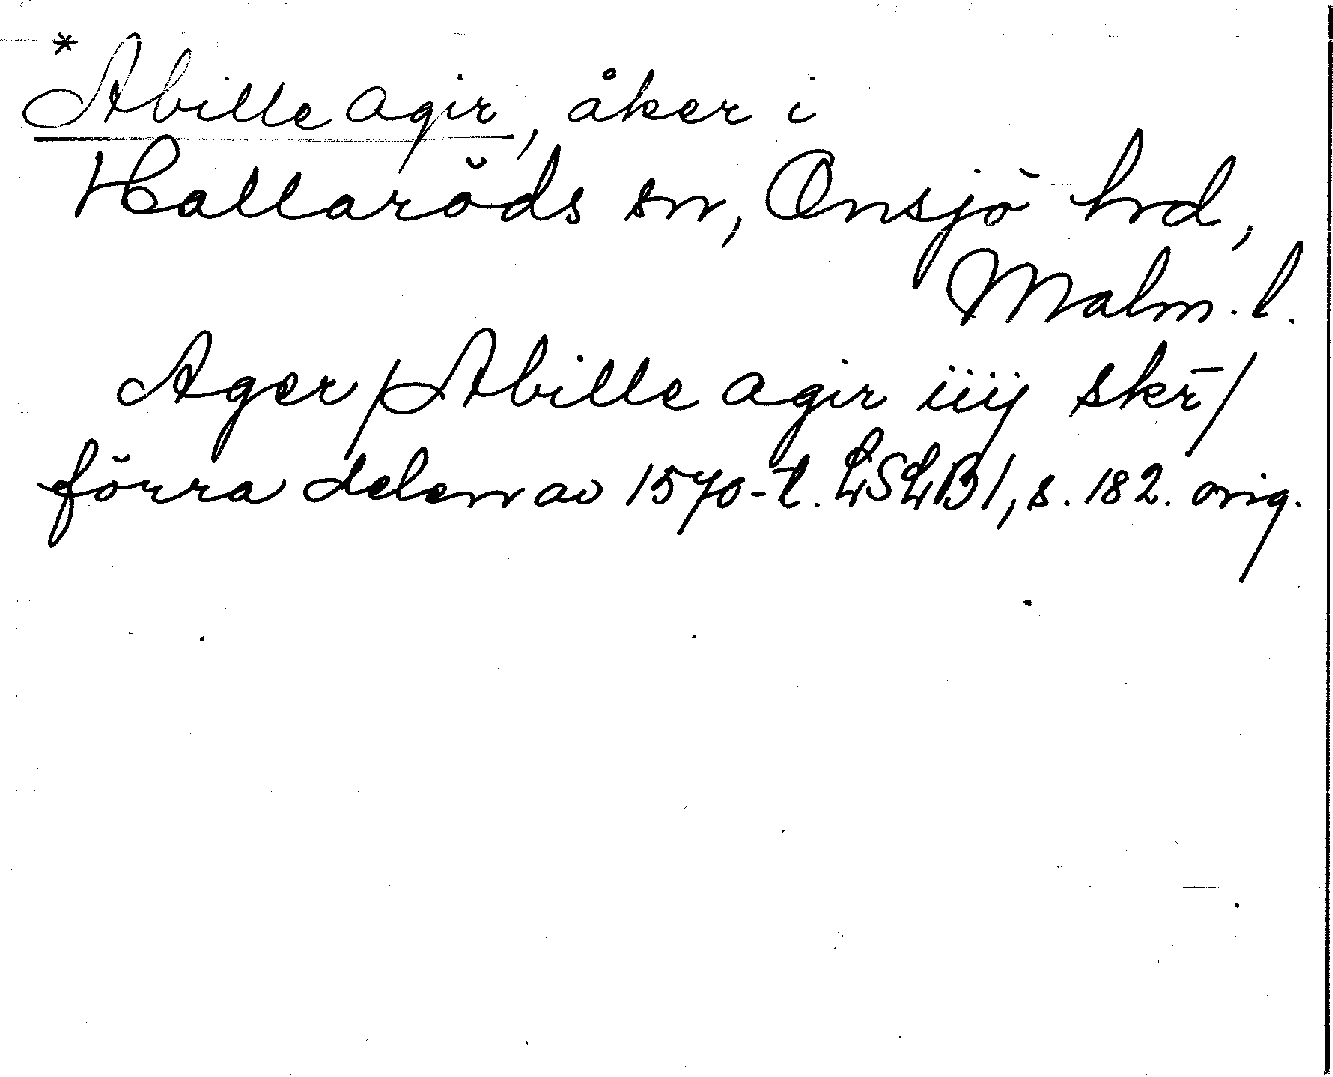 *Abille agir, åker i
Hallaröds sn, Onsjö hrd,
Malm. l.
Ager / Abille agir iiij skr̄ /
förra delen av 1570-t. LSLB1, s. 182. orig.